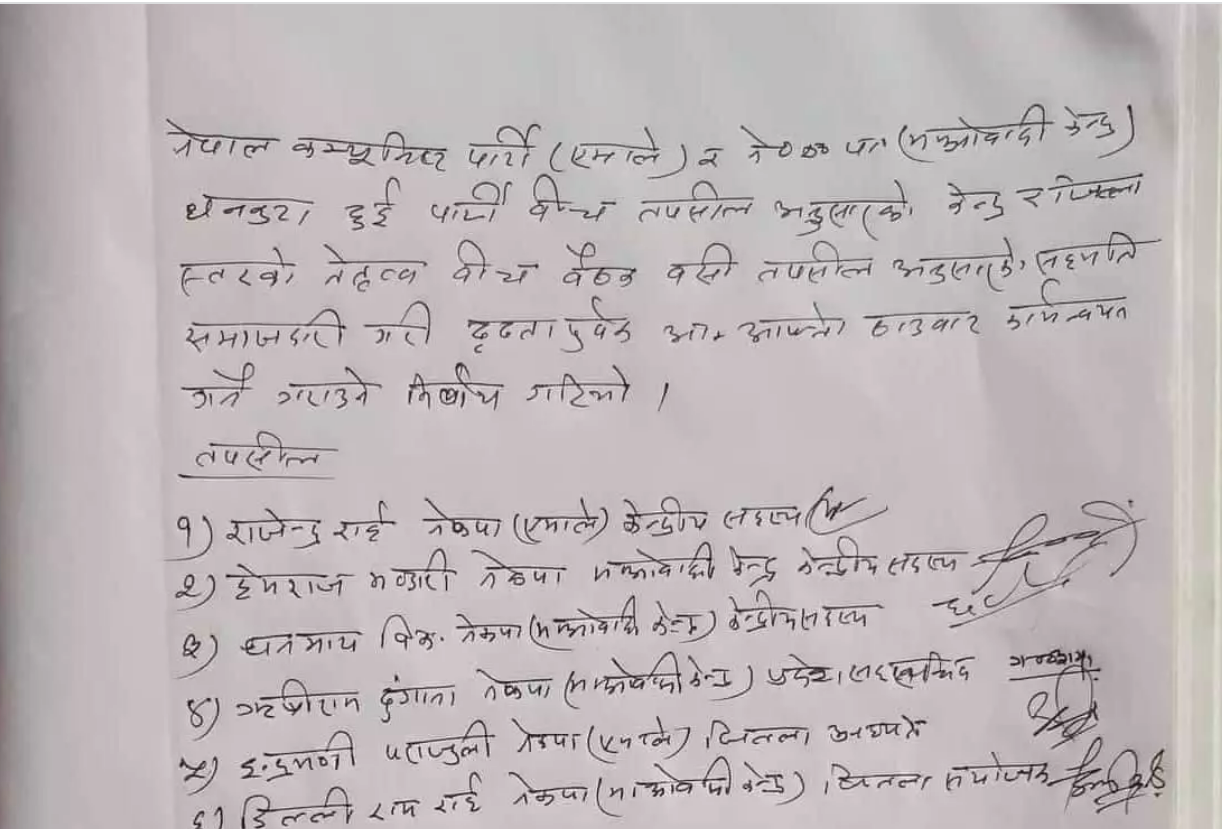 नेपाल कम्युनिष्ट पार्टी (एमाले) र ने (माओवादी केन्द्र)
धनकुटा, दुई पार्टी वीच तपसील अनुसारको केन्द्र र जिल्ला
स्तरको नेतृत्व वीच वैठक वसी तपसील अनुसारको सहमति
समाजदारी गरी दृढता पुर्वक आ-आफ्नो ठाउवार कार्यन्वयन
गर्ने गराउने निर्णय गरियो ।
तपसील
१) राजेन्द्र राई नेकपा (एमाले) केन्द्रीय सदस्य
२) हेमराज भण्डारी नेकपा माओवादी केन्द्र केन्द्रीय सदस्य
३) धनमाय विक. नेकपा (माओवादी केन्द्र) केन्द्रीय सदस्य
४) दुंगाना नेकपा (माओवादी केन्द्र) प्रदेश
५) इन्द्रमणी पराजुली नेकपा (एमाले) जिल्ला अध्यक्ष
६) डिल्ली राम राई नेकपा (माओवादी केन्द्र) जिल्ला संयोजक